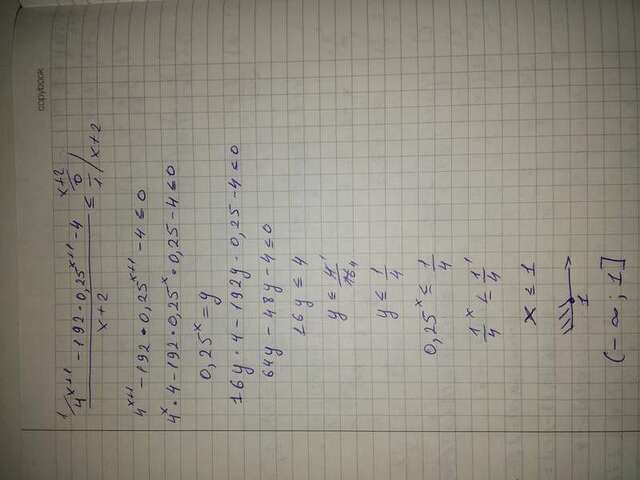 copybook
1/ (4^(x+1) - 192 · 0,25^(x+1) - 4) / (x+2) ≤ x+2/ 0/1 / x+2
4^(x+1) - 192 · 0,25^(x+1) - 4 ≤ 0
4^x · 4 - 192 · 0,25^x · 0,25 - 4 ≤ 0
0,25^x = y
16y · 4 - 192y · 0,25 - 4 ≤ 0
64y - 48y - 4 ≤ 0
16y ≤ 4
y ≤ 4^1/16_4
y ≤ 1/4
0,25^x ≤ 1/4
1/4^x ≤ 1/4^1
x ≤ 1
1
(- ∞; 1]